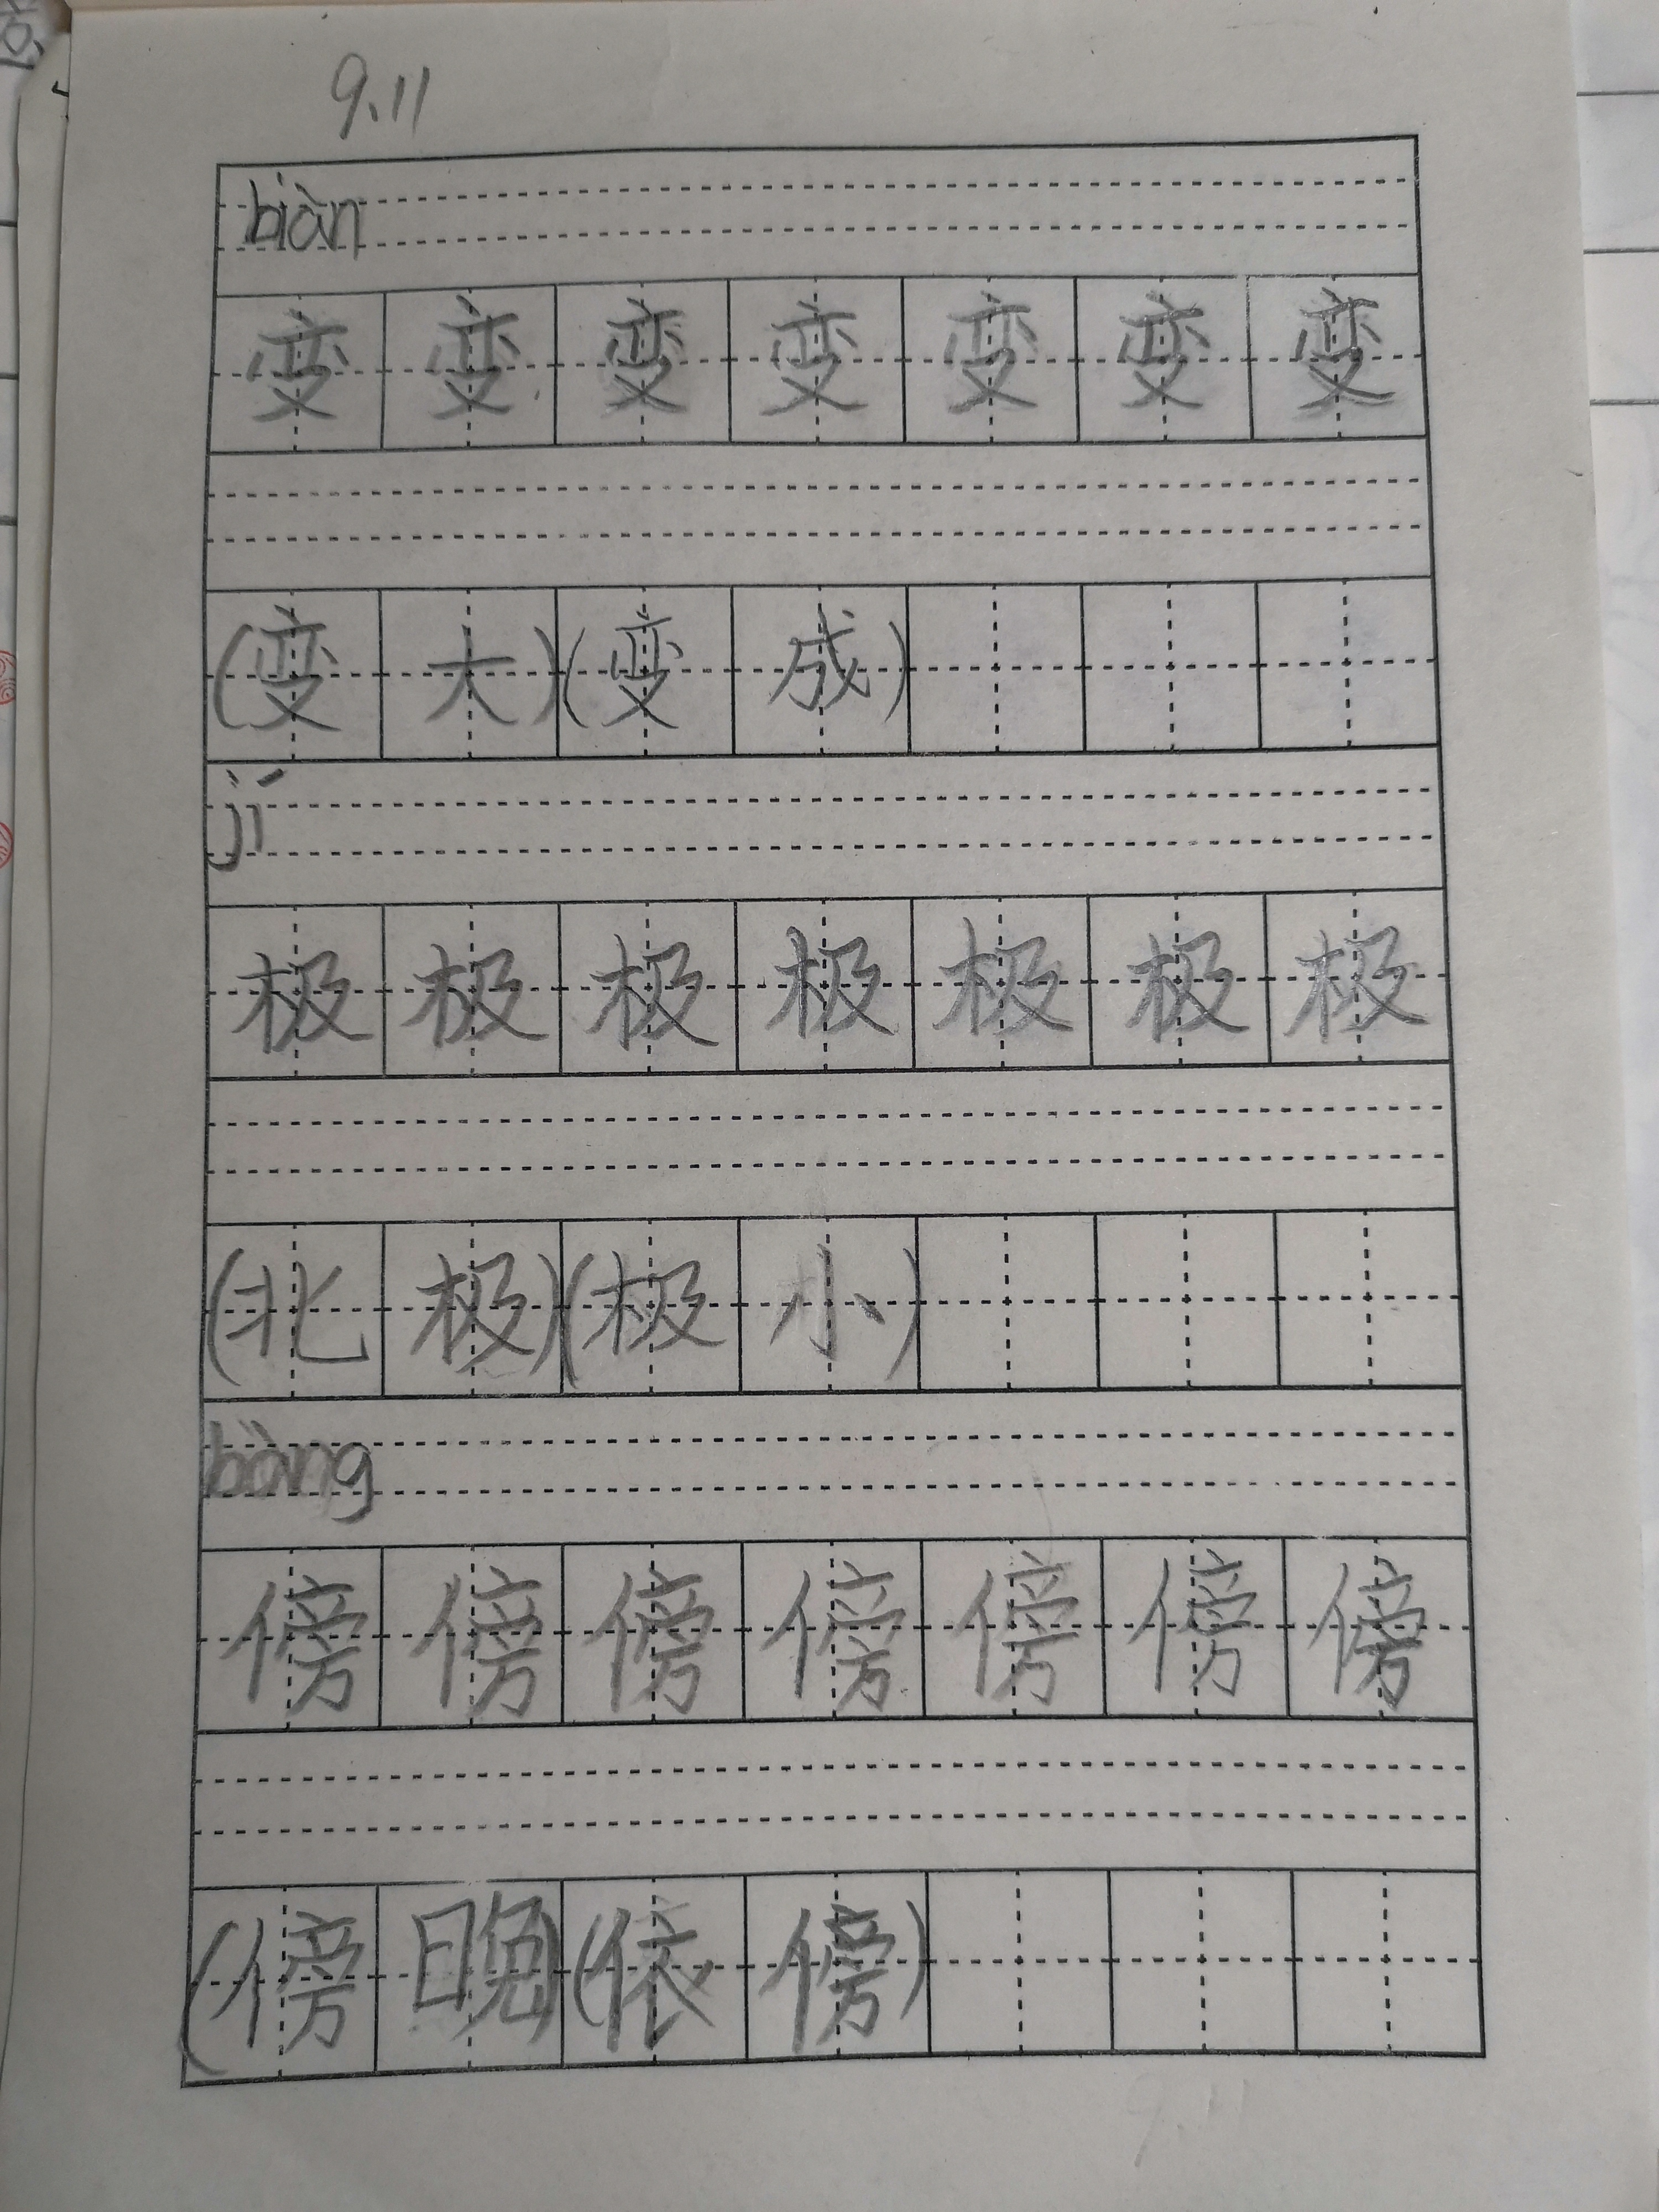 9.11
biàn
变变变变变变变
(变大)(变成)
jí
极极极极极极极
(北极)(极小)
bàng
傍傍傍傍傍傍傍
(傍晚)(依傍)
9.11